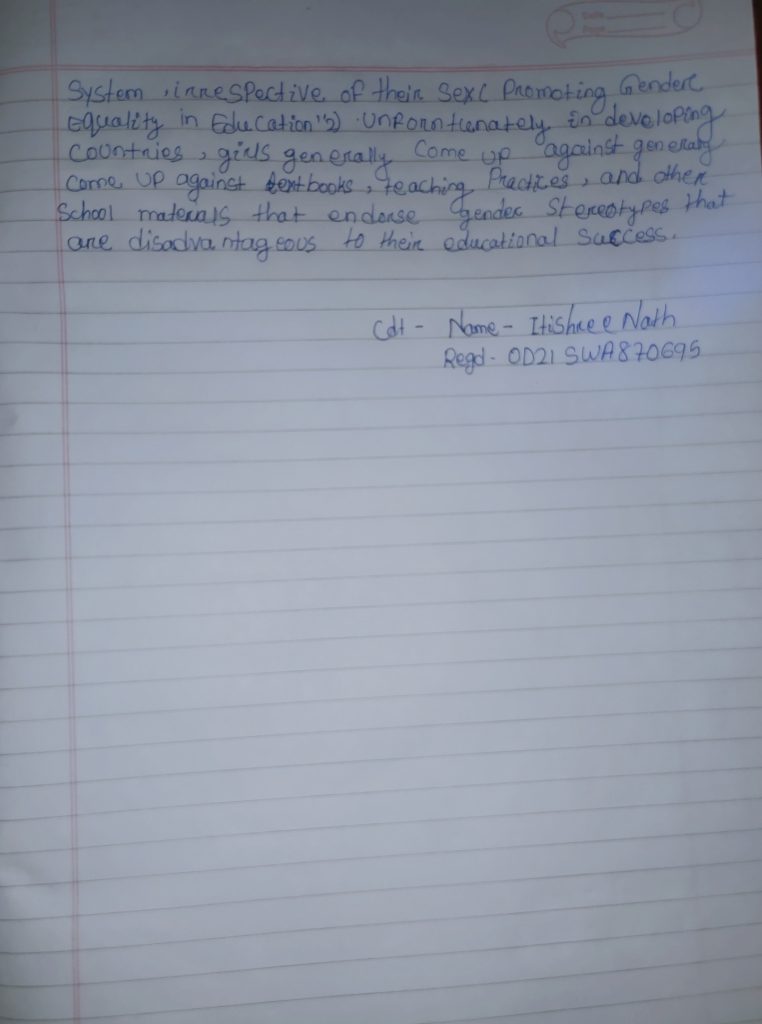 System , irrespective of their sex ( Promoting Gender
Equality in Education"2) . Unforntunately in developing
countries , girls generally come up against generally
come up against textbooks , teaching Practices , and other
School materials that endorse gender Stereotypes that
are disadvantageous to their educational success.
Cdt - Name - Itishree Nath
Regd - OD21 SWA870695